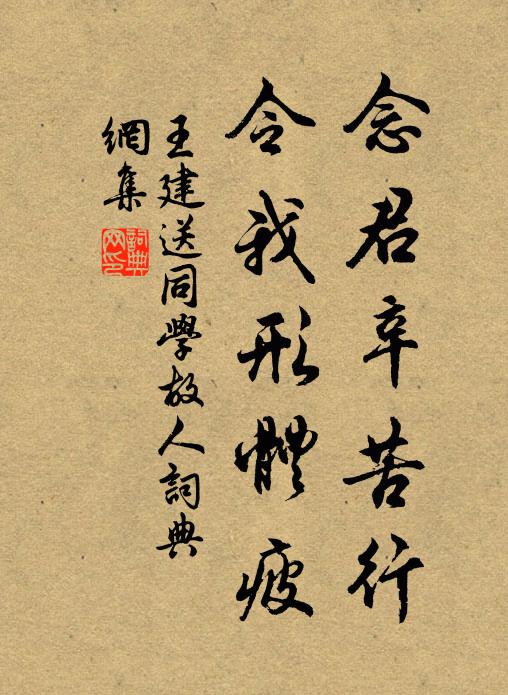 念君辛苦行
令我形體疲
王建送同學故人詞典
網集
詞典
网印